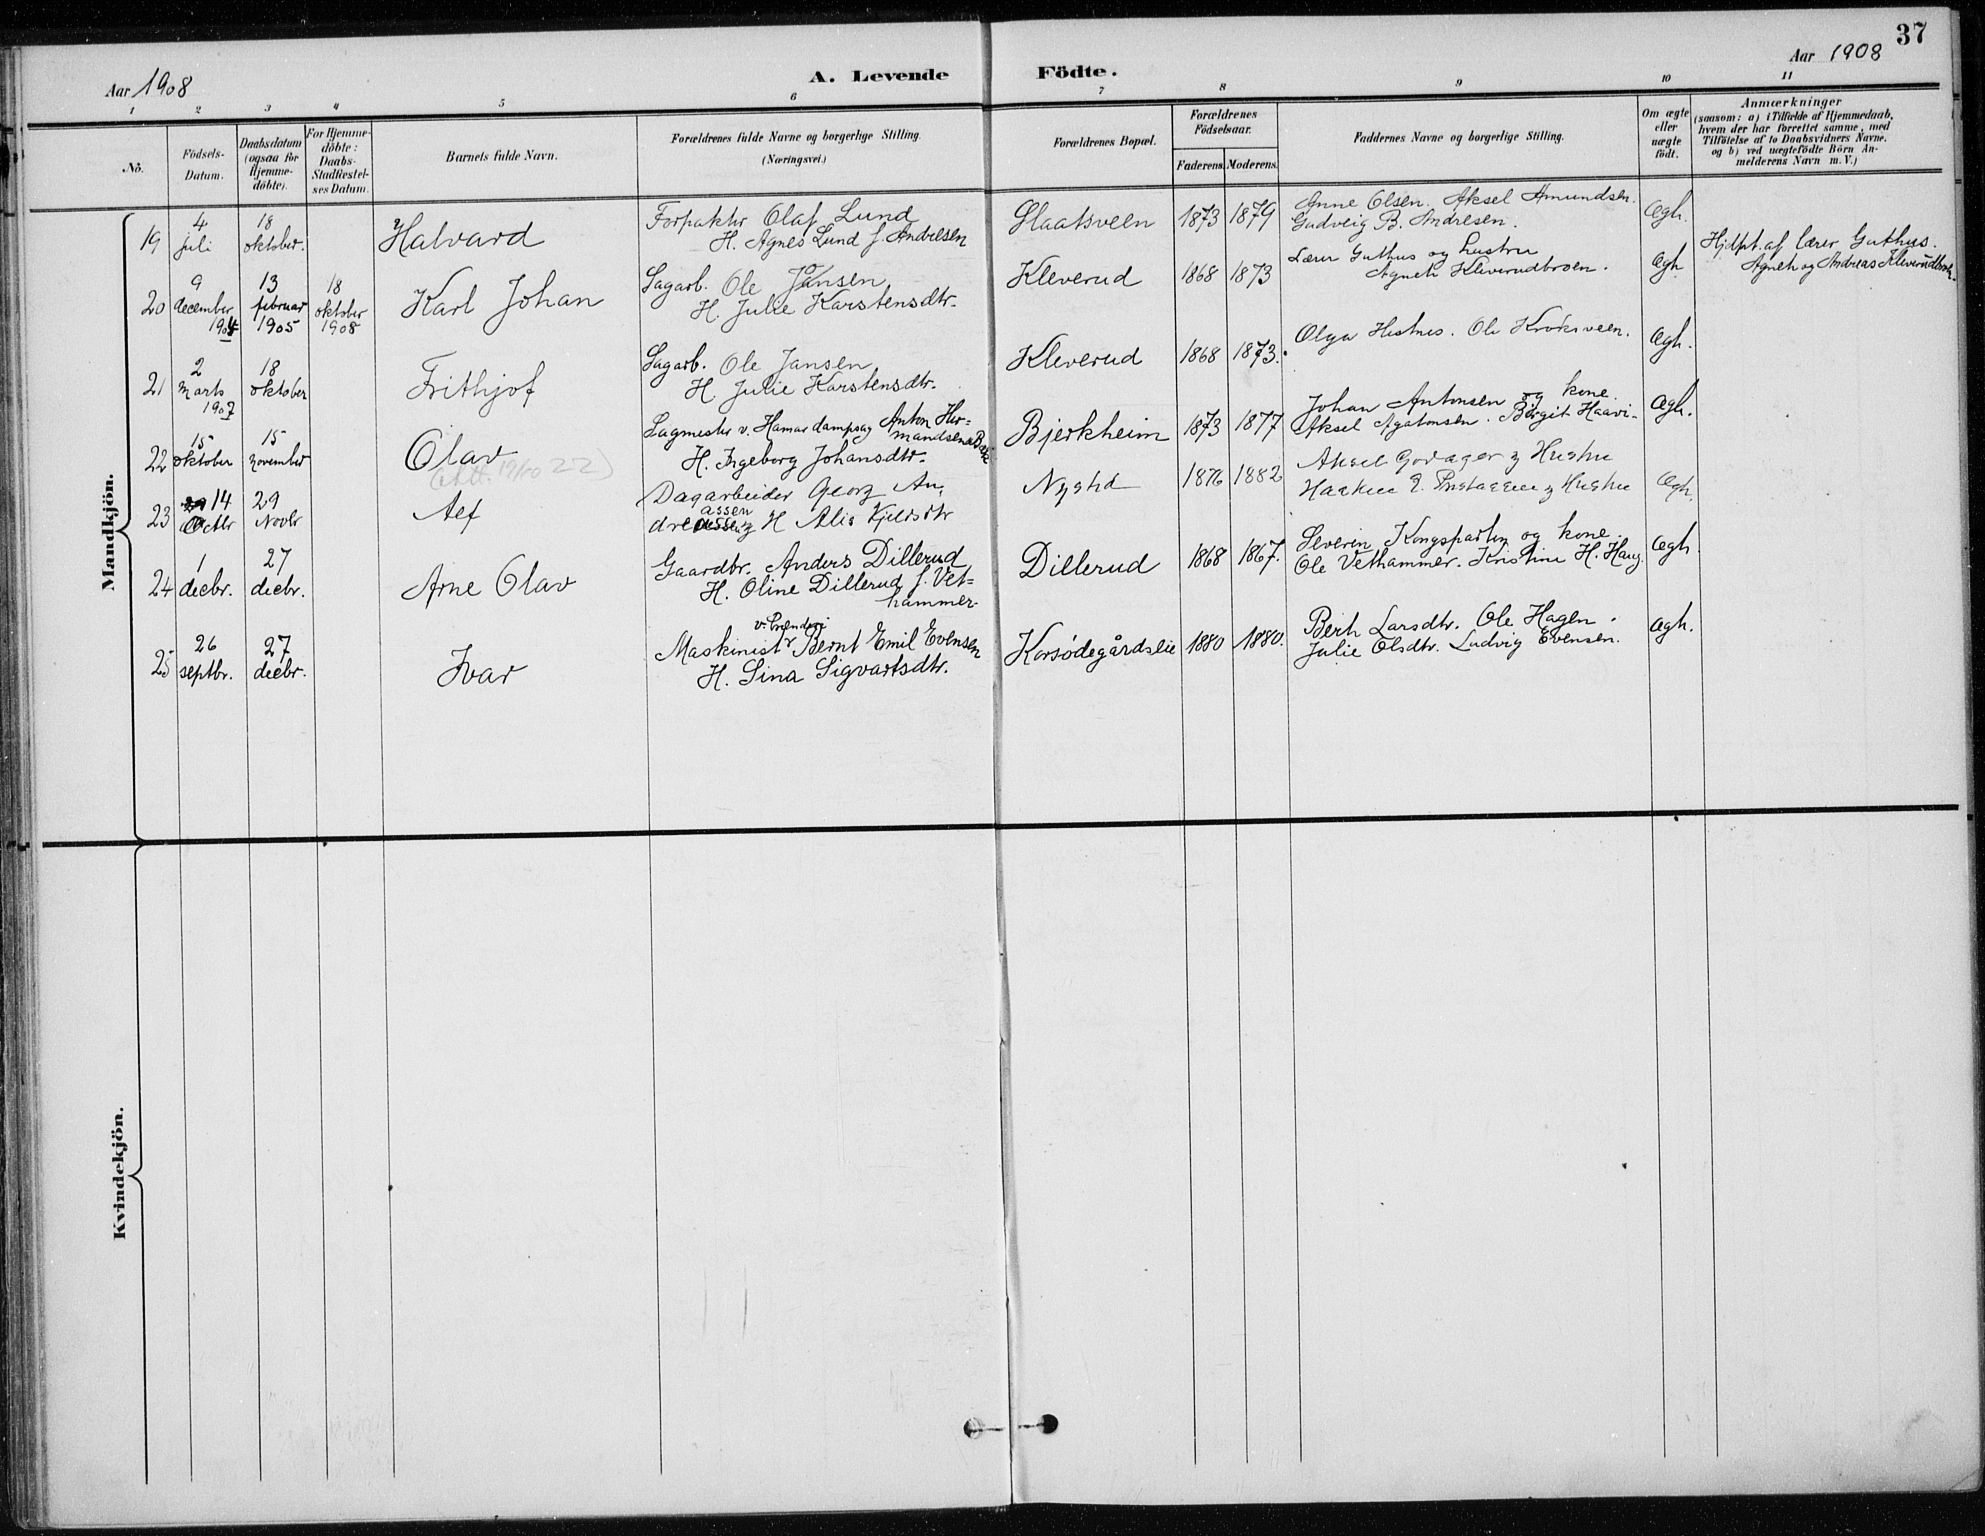 37
Aar 1908
A. Levende Födte.
Aar 1908
1 2 3 4 5 6 7 8 9 10 11
No.
Födsels-Datum.
Daabsdatum (ogsaa for Hjemme-döbte).
For Hjemme-döbte: Daabs-Stadfæstel-ses Datum.
Barnets fulde Navn.
Forældrenes fulde Navne og borgerlige Stilling.
(Næringsvei.)
Forældrenes Bopæl.
Forældrenes Födselsaar.
Faderens. Moderens.
Faddernes Navne og borgerlige Stilling.
Om ægte eller uægte födt.
Anmærkninger
(saasom: a) i Tilfælde af Hjemmedaab,
hvem der har forrettet samme, med
Tilföielse af to Daabsvidners Navne.
og b) ved uægtefödte Börn An-
melderens Navn m. V.)
Mandkjön.
19 4 juli 18 oktober. Halvard
Forpakter Olaf Lund
H. Agnes Lund f. Andresen
Slaatsveen 1873 1879
Anne Olsen. Aksel Amundsen.
Gudveig B. Andresen.
Ægh.
20 9 december 1904 13 februar 1905 18 oktober 1908 Karl Johan
Sagarb. Ole Jansen
H. Julie Karstensdtr.
Kleverud 1868 1873
Lærer Guthus og hustru
Agnete Kleverudbroen.
Ægh
Hjdpt. af lærer Guthus.
Agnete og Andreas Kleverudbroen.
21 2 marts 1907 18 oktober Frithjof
Sagarb. Ole Jansen
H. Julie Karstensdtr.
Kleverud 1868 1873.
Olga Hestnes. Ole Kroksveen.
Ægh.
22 15 oktober 15 november Olav
(Att. 19/10 22)
Sagmester v. Hamar dampsag Anton Her-
mandsen
H. Ingeborg Johansdtr.
Bjerkheim 1873 1877
Johan Antonsen og kone.
Aksel Agatonsen. Birgit Haavi-
Ægh.
23 14 Octbr 29 Novbr
Dagarbeider Georg An,
dreassen H Alis Kjeldsdtr
Nysted 1876 1882
Aksel Godager og Hustru
Haaken E. og Hustru
Ægh.
24 1 decbr. 27 decbr. Arne Olav
Gaardbr. Anders Dillerud
H. Oline Dillerud f. Vet-
hammer
Dillerud 1868 1867.
Severin Kongsparten og kone.
Ole Vethammer. Kristine H. Haug.
Ægh.
25 26 septbr. 27 decbr. Ivar
Maskinist v. Brænderi Bernt Emil Evensen
H. Sina Sigvartsdtr.
Korsødegårdslie 1880 1880.
Berth Larsdtr. Ole Hagen.
Julie Olsdtr. Ludvig Evensen.
Ægh.
Kvindekjön.